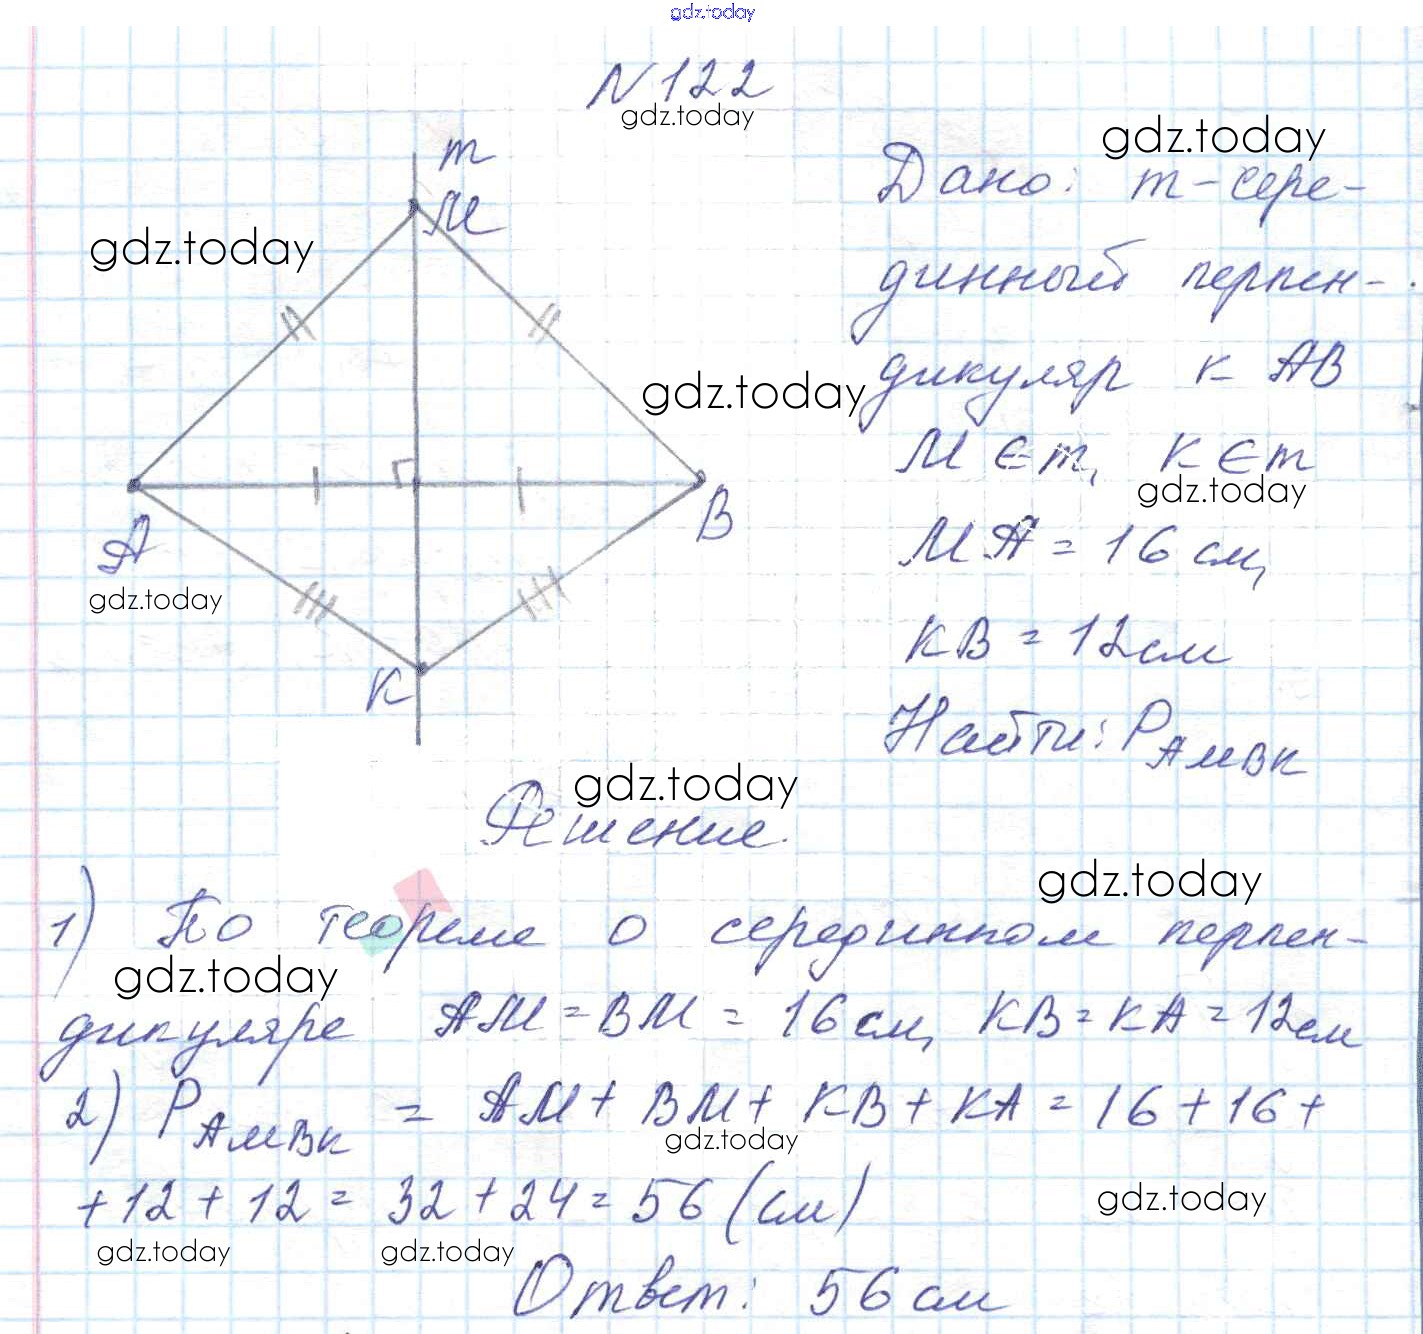 gdz.today
N122
gdz.today
m
M
A
B
K
gdz.today
gdz.today
gdz.today
gdz.today
Дано: m - сере-
динный перпен-
дикуляр к AB
gdz.today
M ∈ m, K ∈ m
gdz.today
MA = 16 см,
KB = 12 см
Найти: P_AMBK
gdz.today
Решение.
gdz.today
1) По теореме о серединном перпен-
gdz.today
дикуляре AM = BM = 16 см, KB = KA = 12 см
2) P_AMBK = AM + BM + KB + KA = 16 + 16 +
gdz.today
+ 12 + 12 = 32 + 24 = 56 (см)
gdz.today
gdz.today
gdz.today
Ответ: 56 см